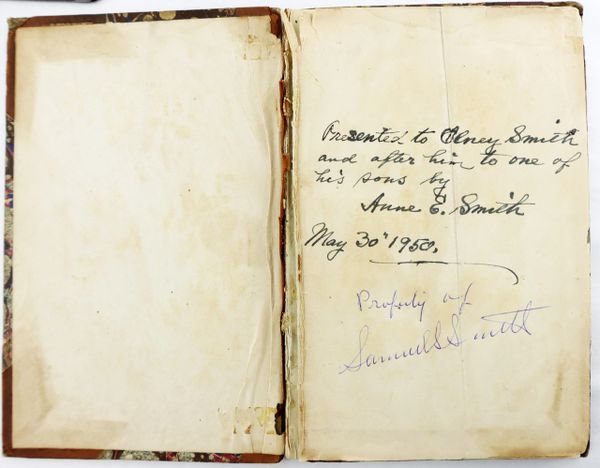 Presented to Olney Smith
and after him to one of
his sons by
Anne E. Smith
May 30" 1950.
Property of
Samuel S Smith